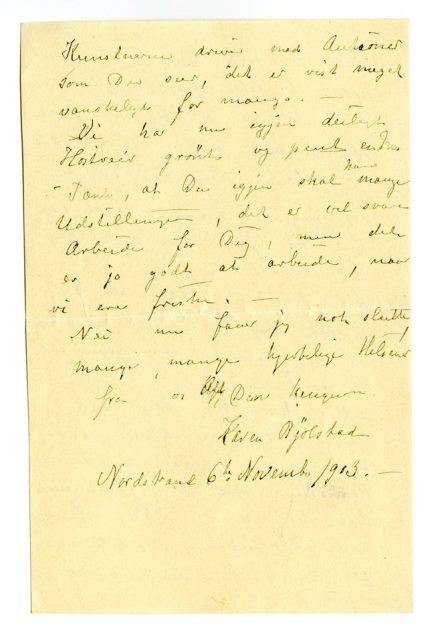 Kunstnerne driver med Auktioner
som Du seer, det er vist meget
vanskeligt for mange. —
Vi har nu igjen deiligt
Høstveir grønt og pent endnu
— Tænk, at Du igjen skal have mange
Udstillinger, det er vel svare
Arbeide for Dig, men det
er jo godt at arbeide, naar
vi ere friske. —
Nei nu faar jeg nok slutte
mange, mange hjertelige Hilsener
fra os Din hengivne
Karen Bjölstad
Nordstrand 6te Novemb. 1903. —